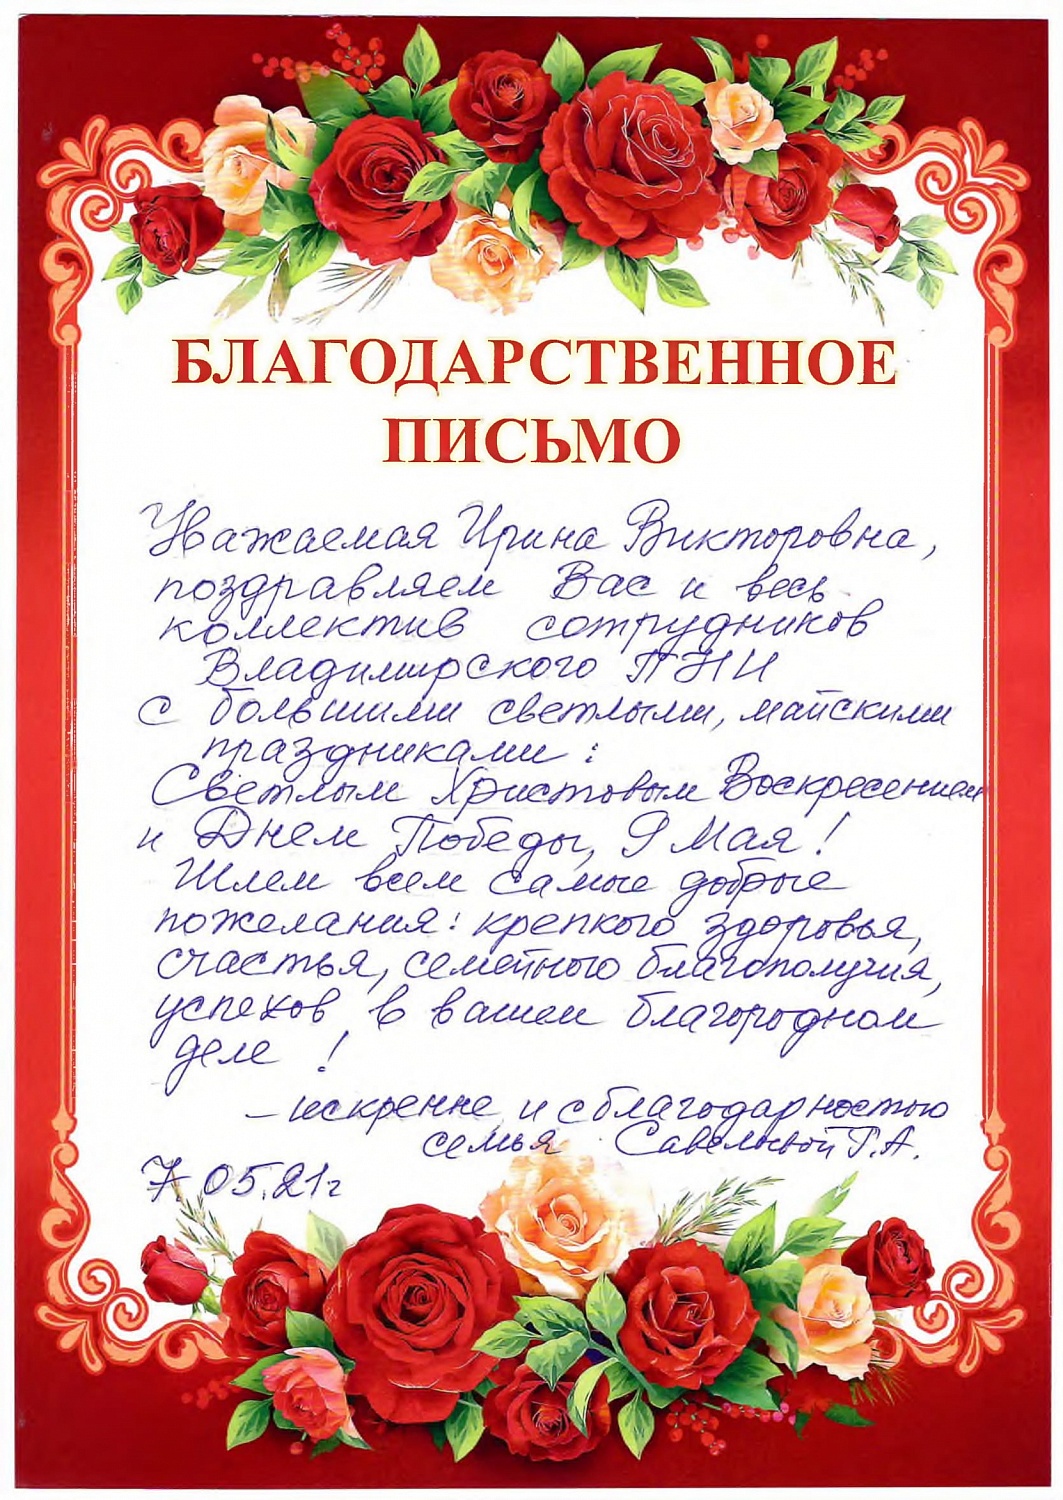 БЛАГОДАРСТВЕННОЕ
ПИСЬМО
Уважаемая Ирина Викторовна,
поздравляем Вас и весь
коллектив сотрудников
Владимирского ПНИ
с большими светлыми, майскими
праздниками:
Светлым Христовым Воскресением
и Днем Победы, 9 Мая!
Шлем всем самые добрые
пожелания: крепкого здоровья,
счастья, семейного благополучия,
успехов в вашем благородном
деле !
– искренне и с благодарностью
семья Савельевой Г.А.
7. 05.21г